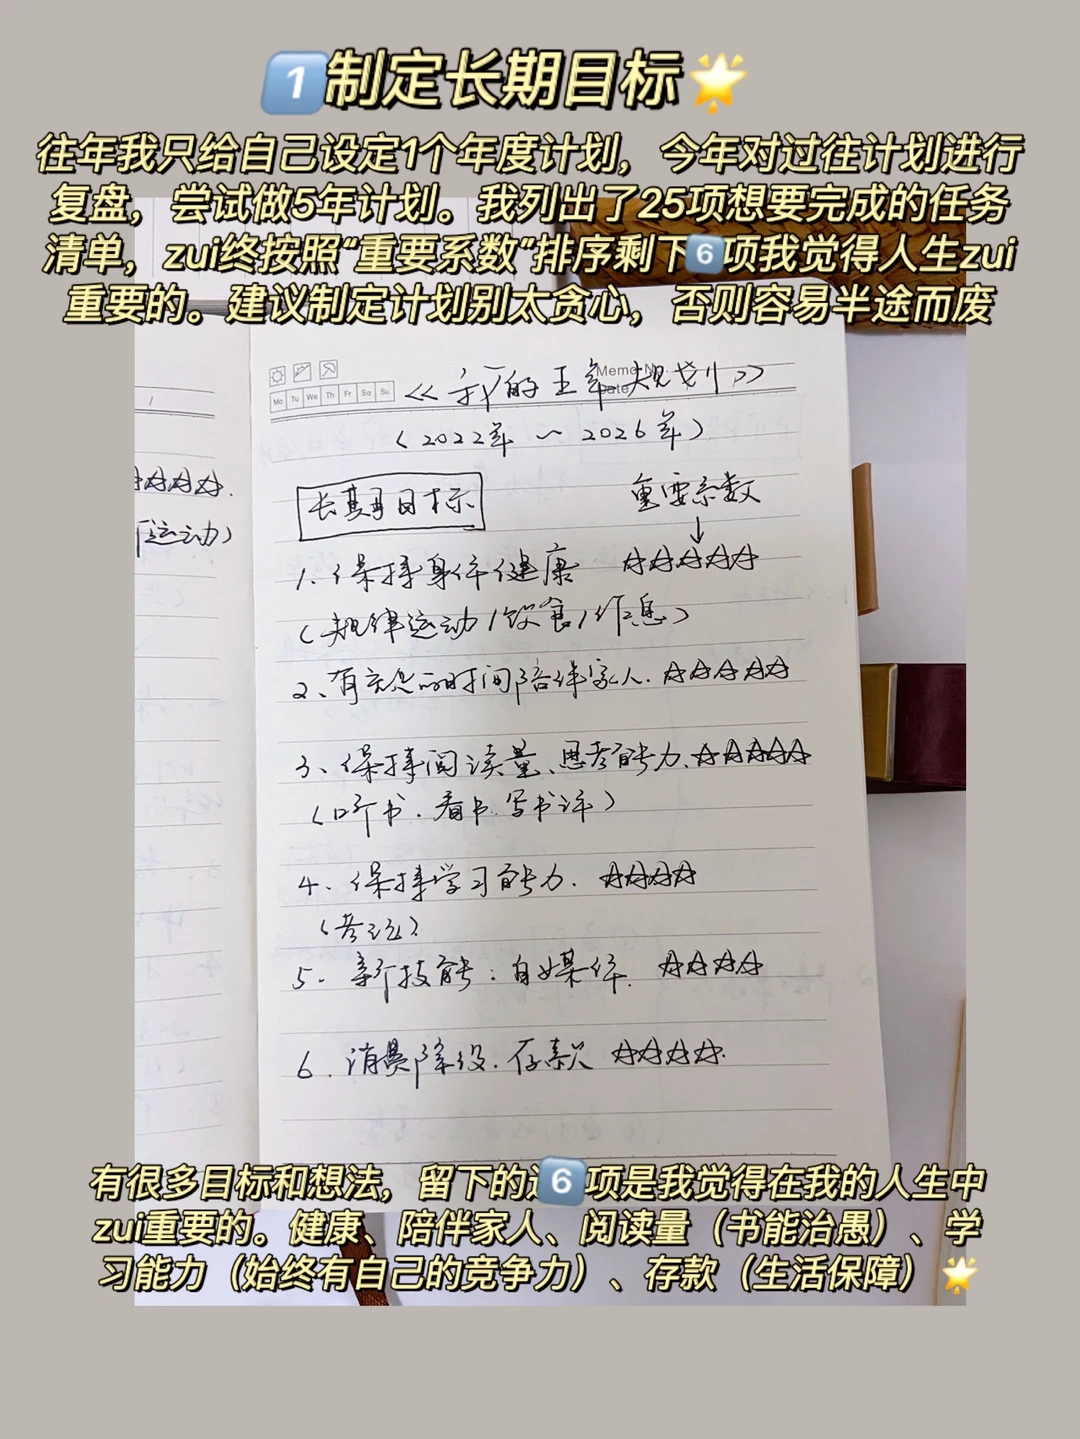 1制定长期目标
往年我只给自己设定1个年度计划，今年对过往计划进行
复盘，尝试做5年计划。我列出了25项想要完成的任务
清单，zui终按照“重要系数”排序剩下6项我觉得人生zui
重要的。建议制定计划别太贪心，否则容易半途而废
Memo No.
Date
Mo Tu We Th Fr Sa Su
《我的五年规划》
（2022年～2026年）
长期目标
重要系数
↓
1、保持身体健康 ☆☆☆☆☆
（规律运动/饮食/作息）
2、有充足的时间陪伴家人. ☆☆☆☆☆
3、保持阅读量、思考能力、☆☆☆☆☆
（听书、看书、写书评）
4、保持学习能力. ☆☆☆☆
（考证）
5. 新技能：自媒体. ☆☆☆☆
6. 消费降级、存款 ☆☆☆☆.
☆☆☆☆.
运动）
有很多目标和想法，留下的这6项是我觉得在我的人生中
zui重要的。健康、陪伴家人、阅读量（书能治愚）、学
习能力（始终有自己的竞争力）、存款（生活保障）